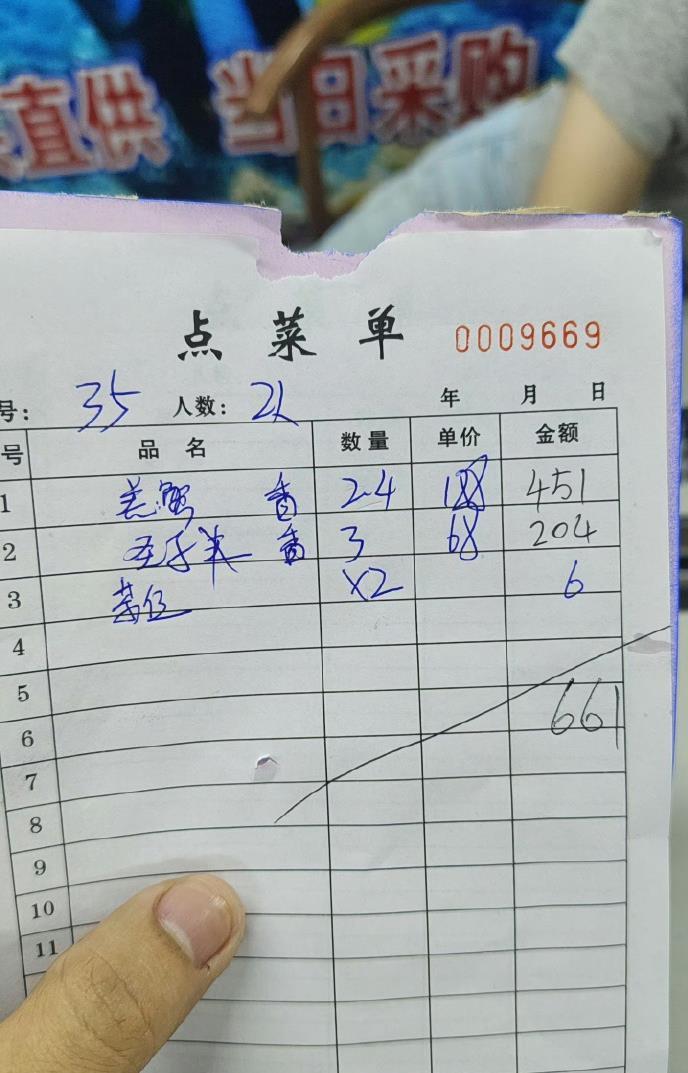 直供 当日采购
点菜单 0009669
号: 35 人数: 2人 年 月 日
号 品名 数量 单价 金额
1 羔蟹 2.4 188 451
2 3 68 204
3 茶位 x2 6
4
5
661
6
7
8
9
10
11